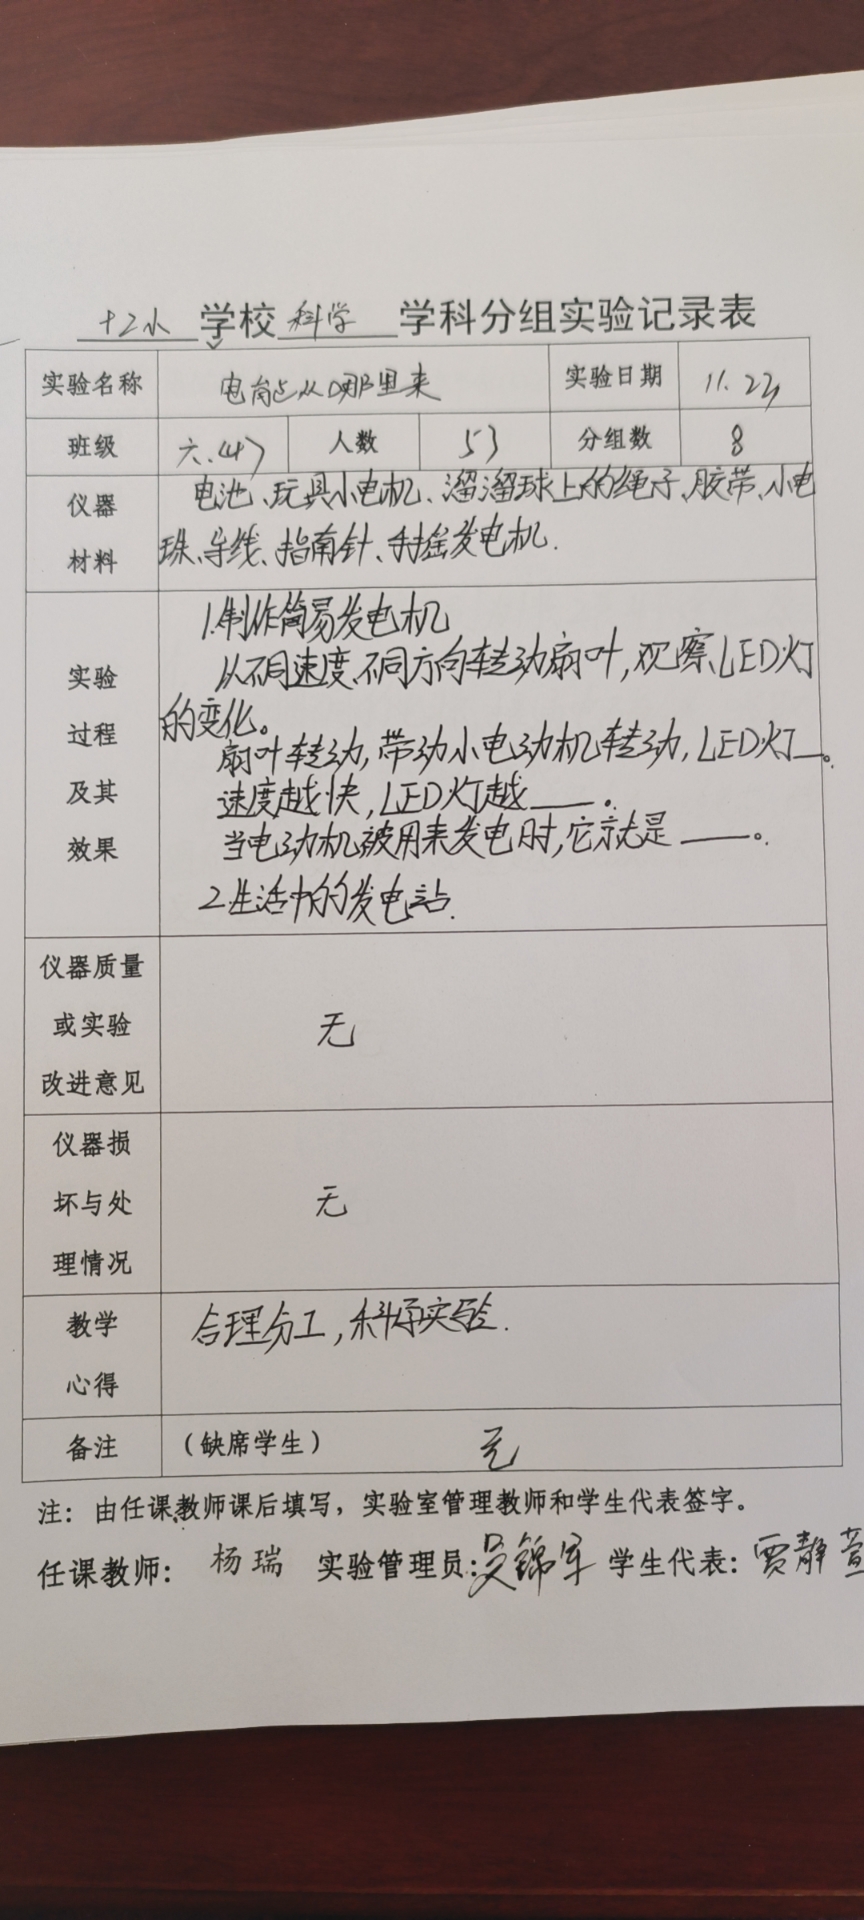 十二小 学校 科学 学科分组实验记录表
实验名称 电能从哪里来 实验日期 11.23
班级 六.(4) 人数 53 分组数 8
仪器材料 电池、玩具小电机、溜溜球上的绳子、胶带、小电
珠、导线、指南针、手摇发电机.
实验过程及其效果
1.制作简易发电机
从不同速度、不同方向转动扇叶,观察LED灯
的变化。
扇叶转动,带动小电动机转动,LED灯__。
速度越快,LED灯越___。
当电动机被用来发电时,它就是____。
2.生活中的发电站.
仪器质量或实验改进意见 无
仪器损坏与处理情况 无
教学心得 合理分工,科学实验.
备注 (缺席学生) 无
注:由任课教师课后填写,实验室管理教师和学生代表签字。
任课教师: 杨瑞 实验管理员: 吴锦军 学生代表: 贾静萱